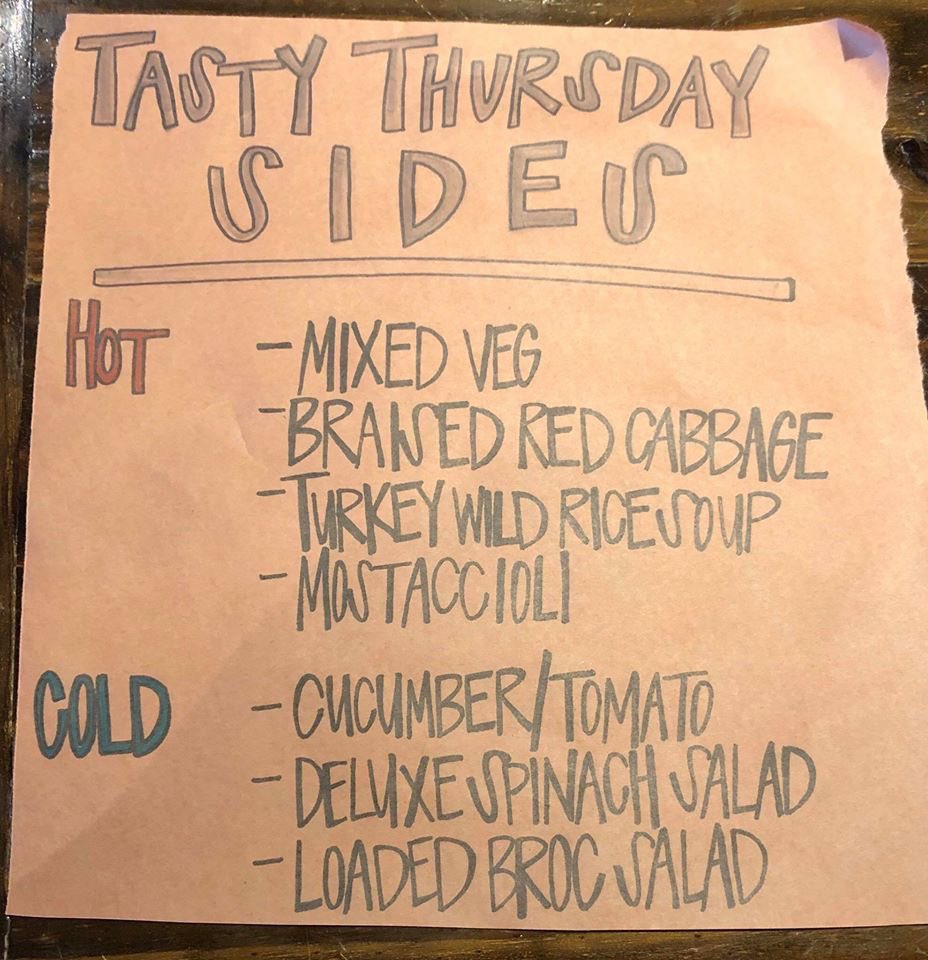 TASTY THURSDAY
SIDES
HOT
- MIXED VEG
- BRAISED RED CABBAGE
- TURKEY WILD RICE SOUP
- MOSTACCIOLI
COLD
- CUCUMBER/TOMATO
- DELUXE SPINACH SALAD
- LOADED BROC SALAD